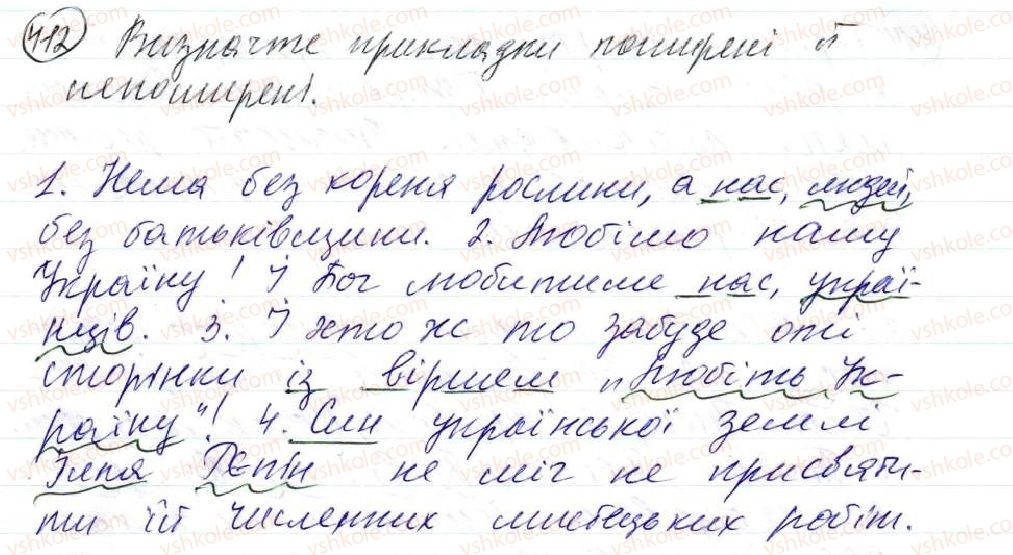 412 Визначте прикладки поширені й
непоширені.
1. Нема без кореня рослини, а нас, людей,
без батьківщини. 2. Любімо нашу
Україну! І Бог любитиме нас, украї-
нців. 3. І хто ж то забуде оті
сторінки із віршем „Любіть Ук-
раїну"! 4. Син української землі
Ілля Рєпін не міг не присвяти-
ти їй численних мистецьких робіт.